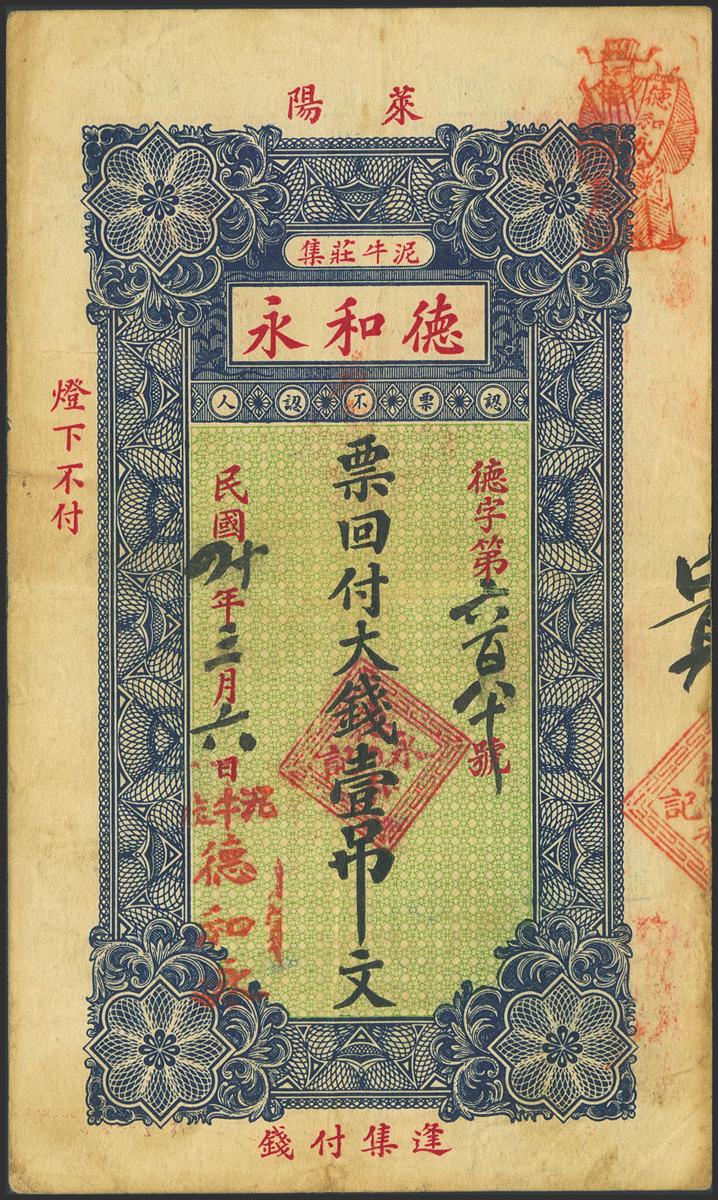 萊陽
泥牛莊集
德和永
認票不認人
德字第六百八十號
票回付大錢壹吊文
民國四年三月六日
泥牛莊
德和永
燈下不付
逢集付錢
德和
永記
記